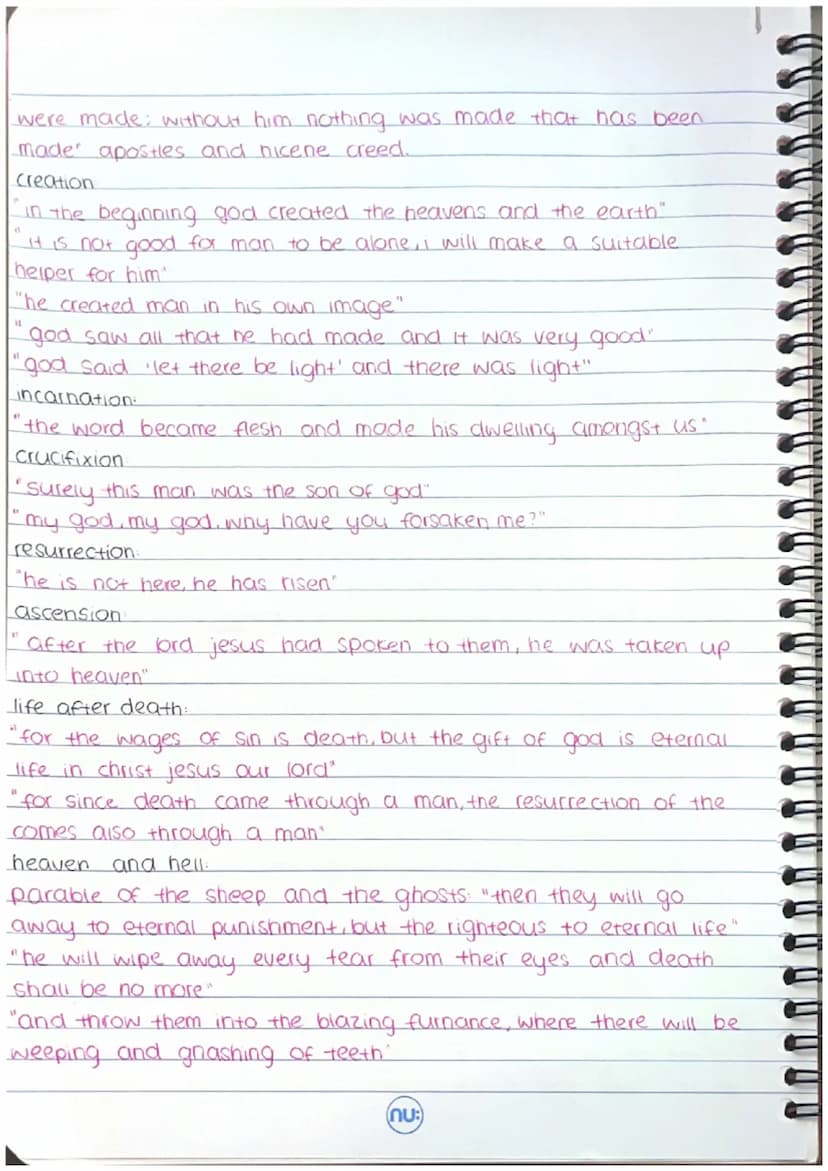 were made; without him nothing was made that has been
made" apostles and nicene creed.
creation
"in the beginning god created the heavens and the earth"
"it is not good for man to be alone, i will make a suitable
helper for him"
"he created man in his own image"
"god saw all that he had made and it was very good"
"god said 'let there be light' and there was light"
incarnation:
"the word became flesh and made his dwelling amongst us"
crucifixion:
"surely this man was the son of god"
"my god, my god, why have you forsaken me?"
resurrection:
"he is not here, he has risen"
ascension:
"after the lord jesus had spoken to them, he was taken up
into heaven"
life after death:
"for the wages of sin is death, but the gift of god is eternal
life in christ jesus our lord"
"for since death came through a man, the resurrection of the
comes also through a man"
heaven and hell:
parable of the sheep and the ghosts: "then they will go
away to eternal punishment, but the righteous to eternal life"
"he will wipe away every tear from their eyes and death
shall be no more"
"and throw them into the blazing furnance, where there will be
weeping and gnashing of teeth"
nu: